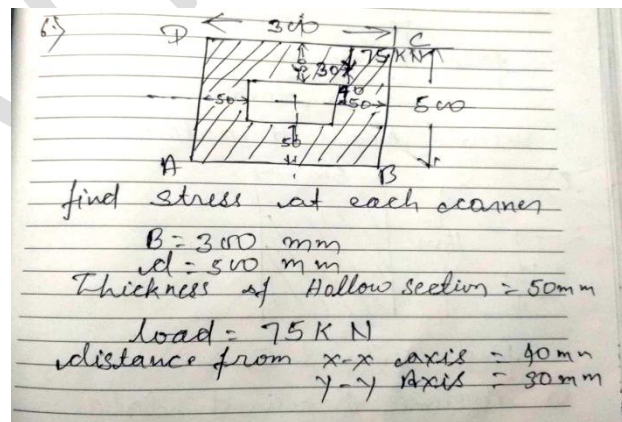 6)
300
D C
75KN
30
40
50 50 500
50
A B
find stress at each corner
B = 300 mm
d = 500 mm
Thickness of Hollow section = 50mm
load = 75 K N
distance from x-x axis = 40mm
y-y Axis = 30mm